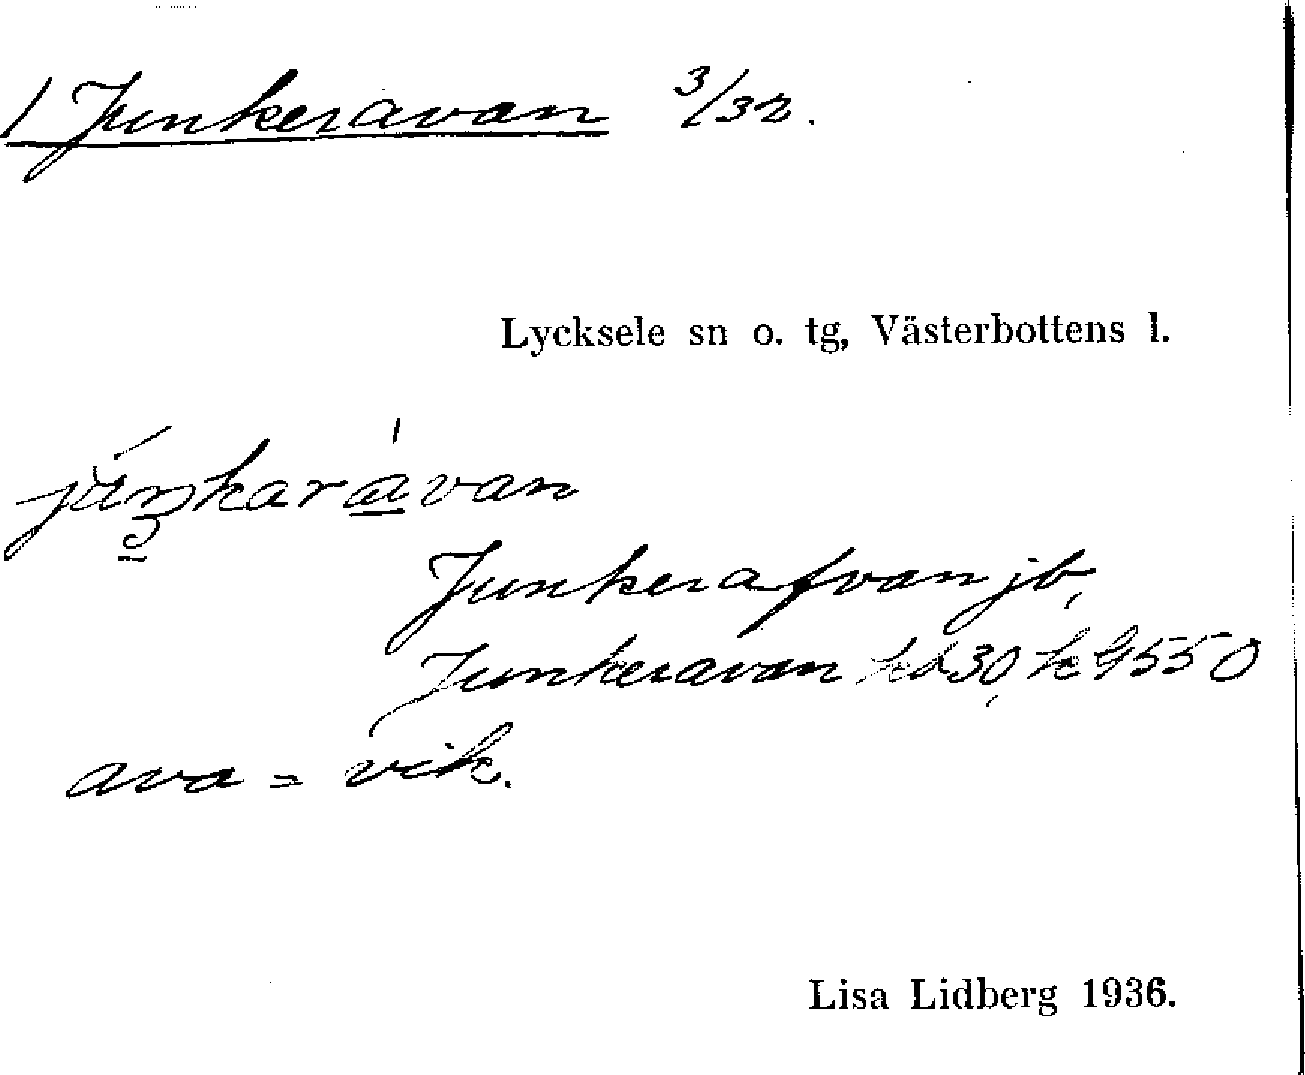 1 Junkeravan 3/32.
Lycksele sn o. tg, Västerbottens l.
Junkerafvan jb,
Junkeravan kb30, k 9550
ava = vik.
Lisa Lidberg 1936.